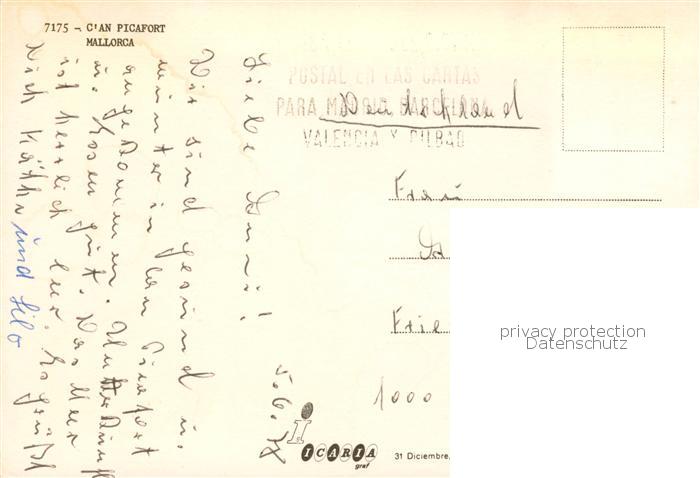 7175 - C'AN PICAFORT
MALLORCA
POSTAL EN LAS CARTAS
PARA MADRID BARCELONA
VALENCIA Y BILBAO
Deutschland
Frau
Frie
1000
Liebe
Wir sind gesund u.
munter in Can Picafort
angekommen. Unterkunft
u. Essen gut. Das Meer
ist herrlich leer. Es grüßt
Dich Käthe und Lilo
5.6.78
ICARIA
graf
31 Diciembre,
privacy protection
Datenschutz